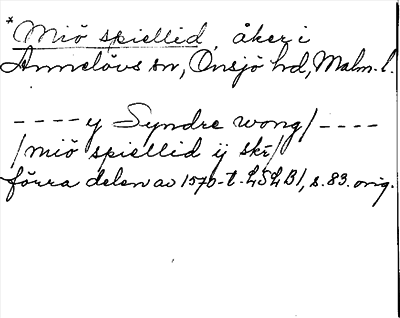 *Miö spiellid, åker i
Annelövs sn, Onsjö hd, Malm. l.
---- y Syndre wong/----
/miö spiellid ij skr/
förra delen av 1570-t. LSLB1, s. 83. orig.